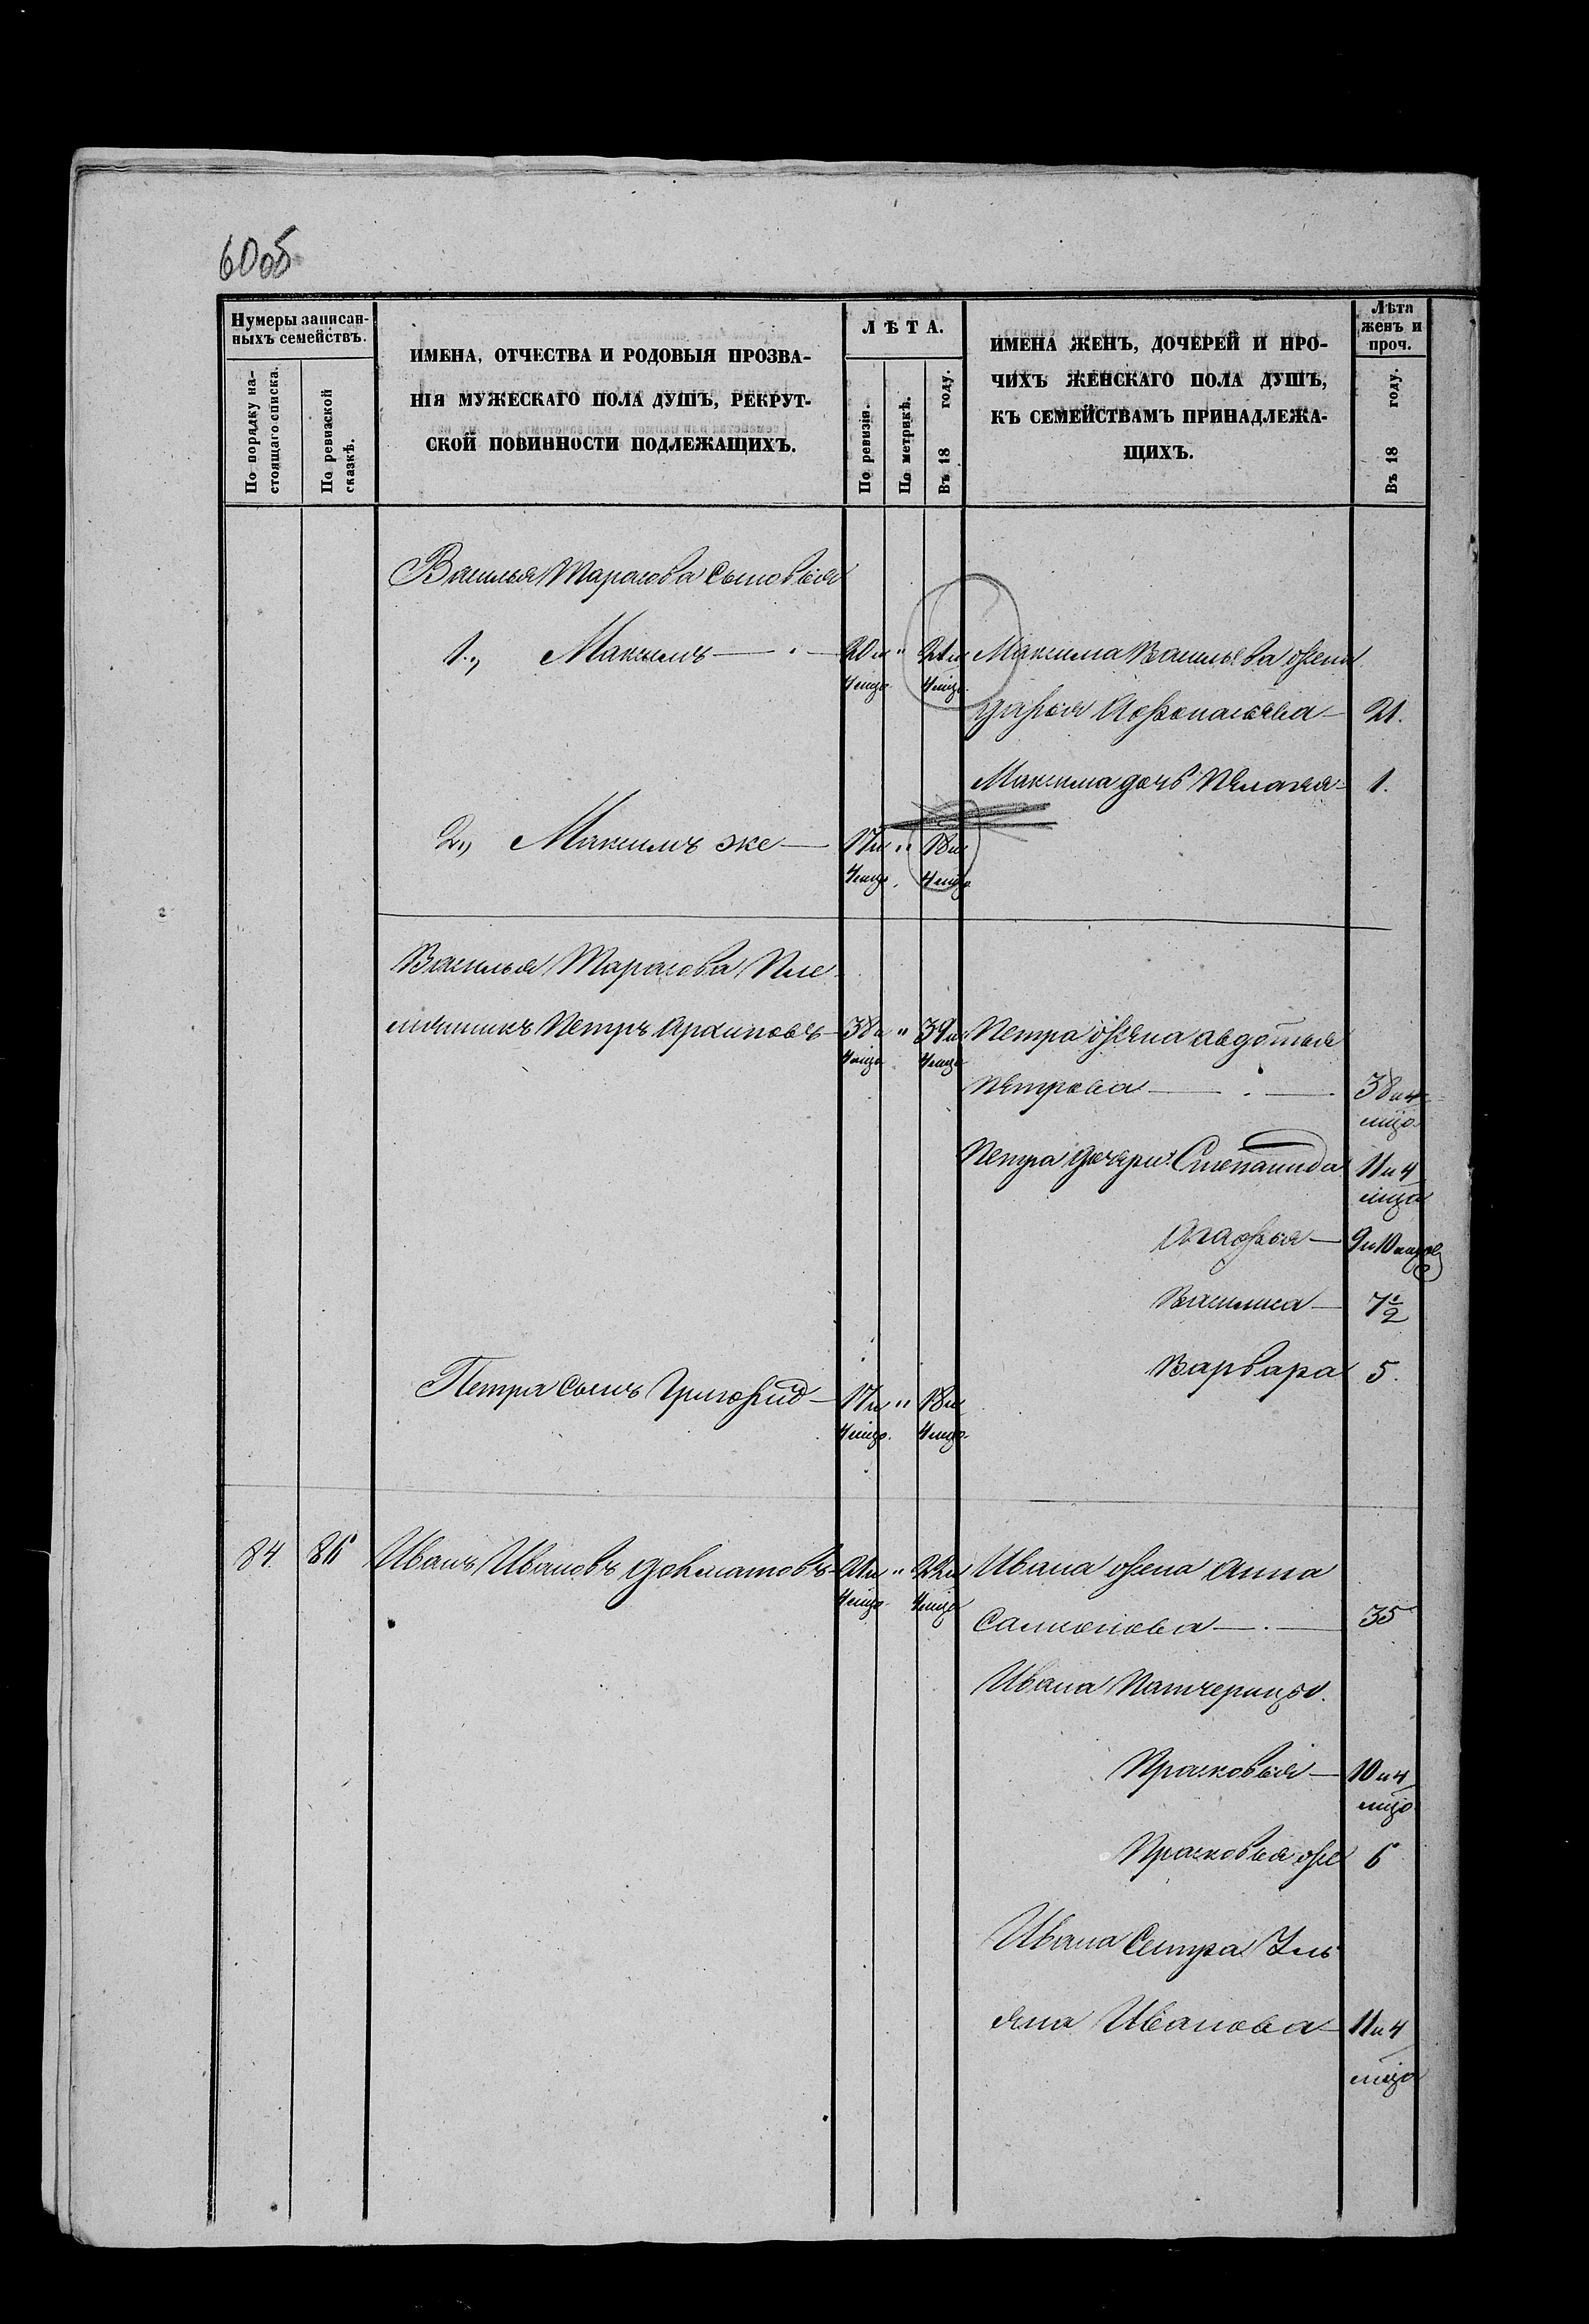 60об
Нумеры записан-
ныхъ семействъ.
По порядку на-
стоящаго списка.
По ревизской
сказкѣ.
ИМЕНА, ОТЧЕСТВА И РОДОВЫЯ ПРОЗВА-
НІЯ МУЖЕСКАГО ПОЛА ДУШЪ, РЕКРУТ-
СКОЙ ПОВИННОСТИ ПОДЛЕЖАЩИХЪ.
ЛѢТА.
По ревизіи.
По метрикѣ.
Въ 18 году.
ИМЕНА ЖЕНЪ, ДОЧЕРЕЙ И ПРО-
ЧИХЪ ЖЕНСКАГО ПОЛА ДУШЪ,
КЪ СЕМЕЙСТВАМЪ ПРИНАДЛЕЖА-
ЩИХЪ.
Лѣта
женъ и
проч.
Въ 18 году.
Василья Тарасова Сыновья
1., Максимъ — 20 и " 21 и Максима Васильева жена
4 мцо. 4 мцо.
Дарья — 21.
Максима дочь Пелагея — 1.
2., Максимъ же — 17 и " 18 и
4 мцо. 4 мцо.
Василья Тарасова Пле
мянникъ Петръ Архиповъ — 38 и " 39 и Петра жена Авдотья
4 мцо 4 мцо
Петрова — 38 и 4
мцо
Петра дочери: Степанида 11 и 4
мцо
Агафья — 9 и 10 мцов
Василиса — 7 1/2
Варвара 5.
Петра сынъ Григорий — 17 и " 18 и
4 мцо. 4 мцо.
84 86 Иванъ Ивановъ — 21 и " 22 и Ивана жена Анна
4 мцо 4 мцо
Самсонова — 35
Ивана Патчерицы.
Прасковья — 10 и 4
мцо
Прасковья же 6
Ивана Сестра Уль
яна Иванова — 11 и 4
мцо